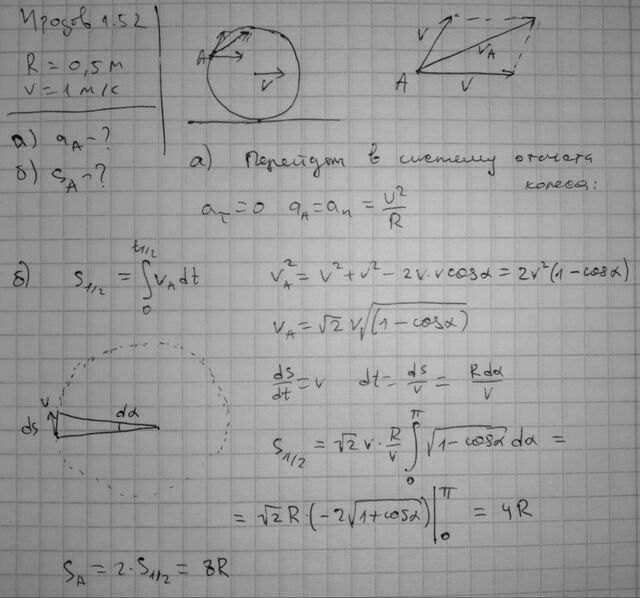 Иродов 1.52
R = 0,5 м
v = 1 м/с
а) a_A - ?
б) S_A - ?
A
v
v
v_A
A
v
а) Перейдём в систему отсчета
колеса:
a_τ = 0 a_A = a_n = v²/R
б) S_1/2 = ∫_0^{t_1/2} v_A dt
v_A² = v² + v² - 2v·v cosα = 2v²(1 - cosα)
v_A = √2 v√(1 - cosα)
ds/dt = v dt = ds/v = Rdα/v
v
ds
dα
S_1/2 = √2 v · R/v ∫_0^π √(1 - cosα) dα =
= √2 R · (-2√(1 + cosα)) |_0^π = 4R
S_A = 2 · S_1/2 = 8R